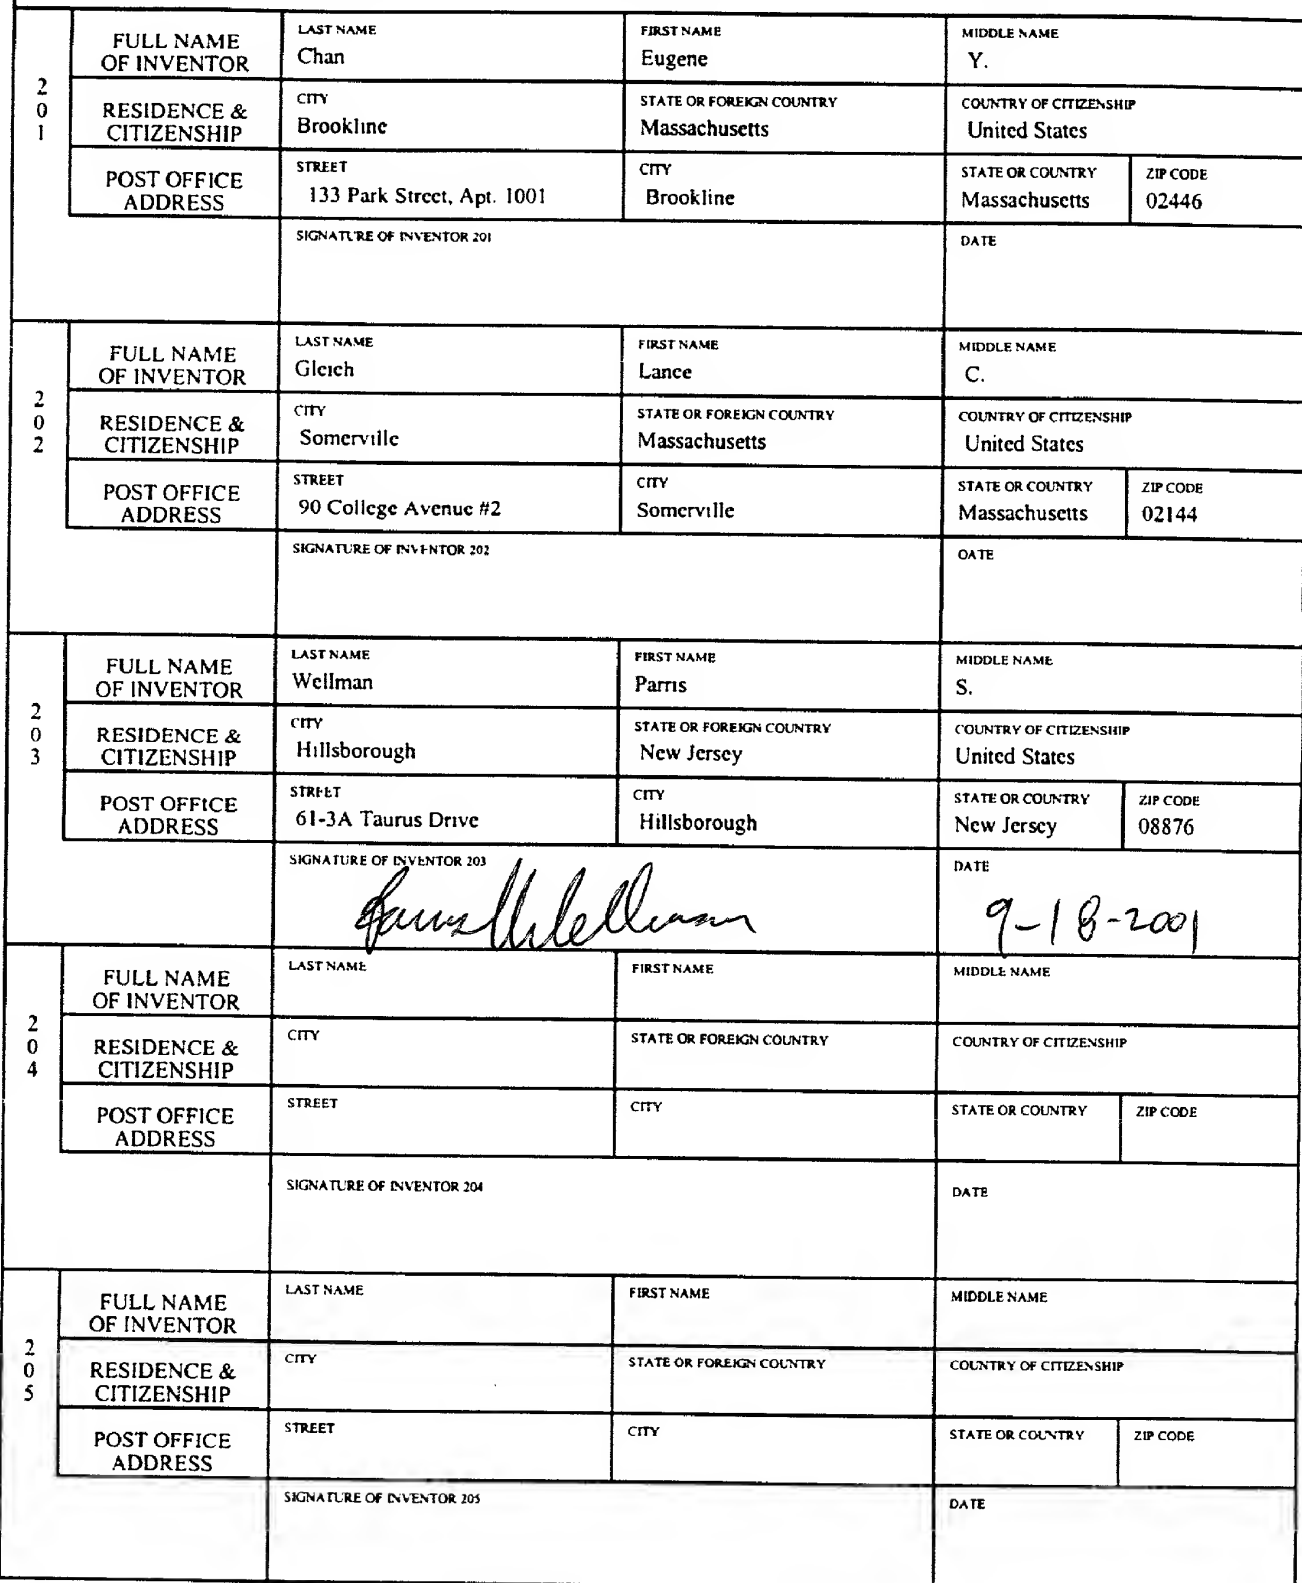 FULL NAME OF INVENTOR
LAST NAME
Chan
FIRST NAME
Eugene
MIDDLE NAME
Y.
201
RESIDENCE & CITIZENSHIP
CITY
Brookline
STATE OR FOREIGN COUNTRY
Massachusetts
COUNTRY OF CITIZENSHIP
United States
POST OFFICE ADDRESS
STREET
133 Park Street, Apt. 1001
CITY
Brookline
STATE OR COUNTRY
Massachusetts
ZIP CODE
02446
SIGNATURE OF INVENTOR 201
DATE
FULL NAME OF INVENTOR
LAST NAME
Gleich
FIRST NAME
Lance
MIDDLE NAME
C.
202
RESIDENCE & CITIZENSHIP
CITY
Somerville
STATE OR FOREIGN COUNTRY
Massachusetts
COUNTRY OF CITIZENSHIP
United States
POST OFFICE ADDRESS
STREET
90 College Avenue #2
CITY
Somerville
STATE OR COUNTRY
Massachusetts
ZIP CODE
02144
SIGNATURE OF INVENTOR 202
DATE
FULL NAME OF INVENTOR
LAST NAME
Wellman
FIRST NAME
Parris
MIDDLE NAME
S.
203
RESIDENCE & CITIZENSHIP
CITY
Hillsborough
STATE OR FOREIGN COUNTRY
New Jersey
COUNTRY OF CITIZENSHIP
United States
POST OFFICE ADDRESS
STREET
61-3A Taurus Drive
CITY
Hillsborough
STATE OR COUNTRY
New Jersey
ZIP CODE
08876
SIGNATURE OF INVENTOR 203
DATE
9-18-2001
FULL NAME OF INVENTOR
LAST NAME
FIRST NAME
MIDDLE NAME
204
RESIDENCE & CITIZENSHIP
CITY
STATE OR FOREIGN COUNTRY
COUNTRY OF CITIZENSHIP
POST OFFICE ADDRESS
STREET
CITY
STATE OR COUNTRY
ZIP CODE
SIGNATURE OF INVENTOR 204
DATE
FULL NAME OF INVENTOR
LAST NAME
FIRST NAME
MIDDLE NAME
205
RESIDENCE & CITIZENSHIP
CITY
STATE OR FOREIGN COUNTRY
COUNTRY OF CITIZENSHIP
POST OFFICE ADDRESS
STREET
CITY
STATE OR COUNTRY
ZIP CODE
SIGNATURE OF INVENTOR 205
DATE